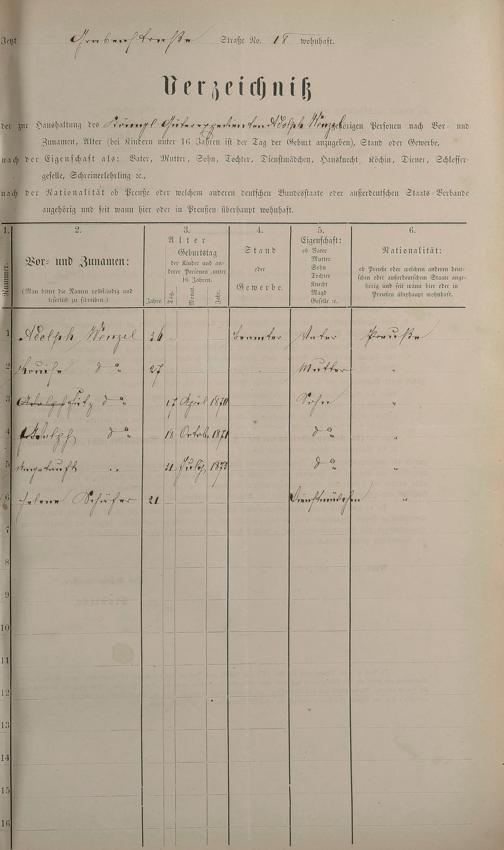 Jetzt Grabenstraße Straße No. 18 wohnhaft.
Verzeichniß
der zur Haushaltung des Königl Güterexpedienten Adolph Wenzel gehörigen Personen nach Vor- und
Zunamen, Alter (bei Kindern unter 16 Jahren ist der Tag der Geburt anzugeben), Stand oder Gewerbe,
nach der Eigenschaft als: Vater, Mutter, Sohn, Tochter, Dienstmädchen, Hausknecht, Köchin, Diener, Schlosser-
geselle, Schreinerlehrling ꝛc.,
nach der Nationalität ob Preuße oder welchem anderen deutschen Bundesstaate oder außerdeutschen Staats-Verbande
angehörig und seit wann hier oder in Preußen überhaupt wohnhaft.
1. 2. 3. 4. 5. 6.
Nummer.
Vor- und Zunamen:
(Man bittet die Namen vollständig und
leserlich zu schreiben.)
Alter
Geburtstag
der Kinder und an-
derer Personen unter
16 Jahren.
Jahre Tag. Monat. Jahr.
Stand
oder
Gewerbe.
Eigenschaft:
ob Vater
Mutter
Sohn
Tochter
Knecht
Magd
Geselle ꝛc.
Nationalität:
ob Preuße oder welchem anderen deut-
schen oder außerdeutschen Staate ange-
hörig und seit wann hier oder in
Preußen überhaupt wohnhaft.
1 Adolph Wenzel 36 Beamter Vater Preuße
2 Louise do 27 Mutter "
3 do 17 April 1870 Sohn "
4 Adolph do 18 Octob. 1871 do "
5 ungetauft " 21 1873 do "
6 Helene Schäfer 21 Dienstmädchen "
7
8
9
10
11
12
13
14
15
16